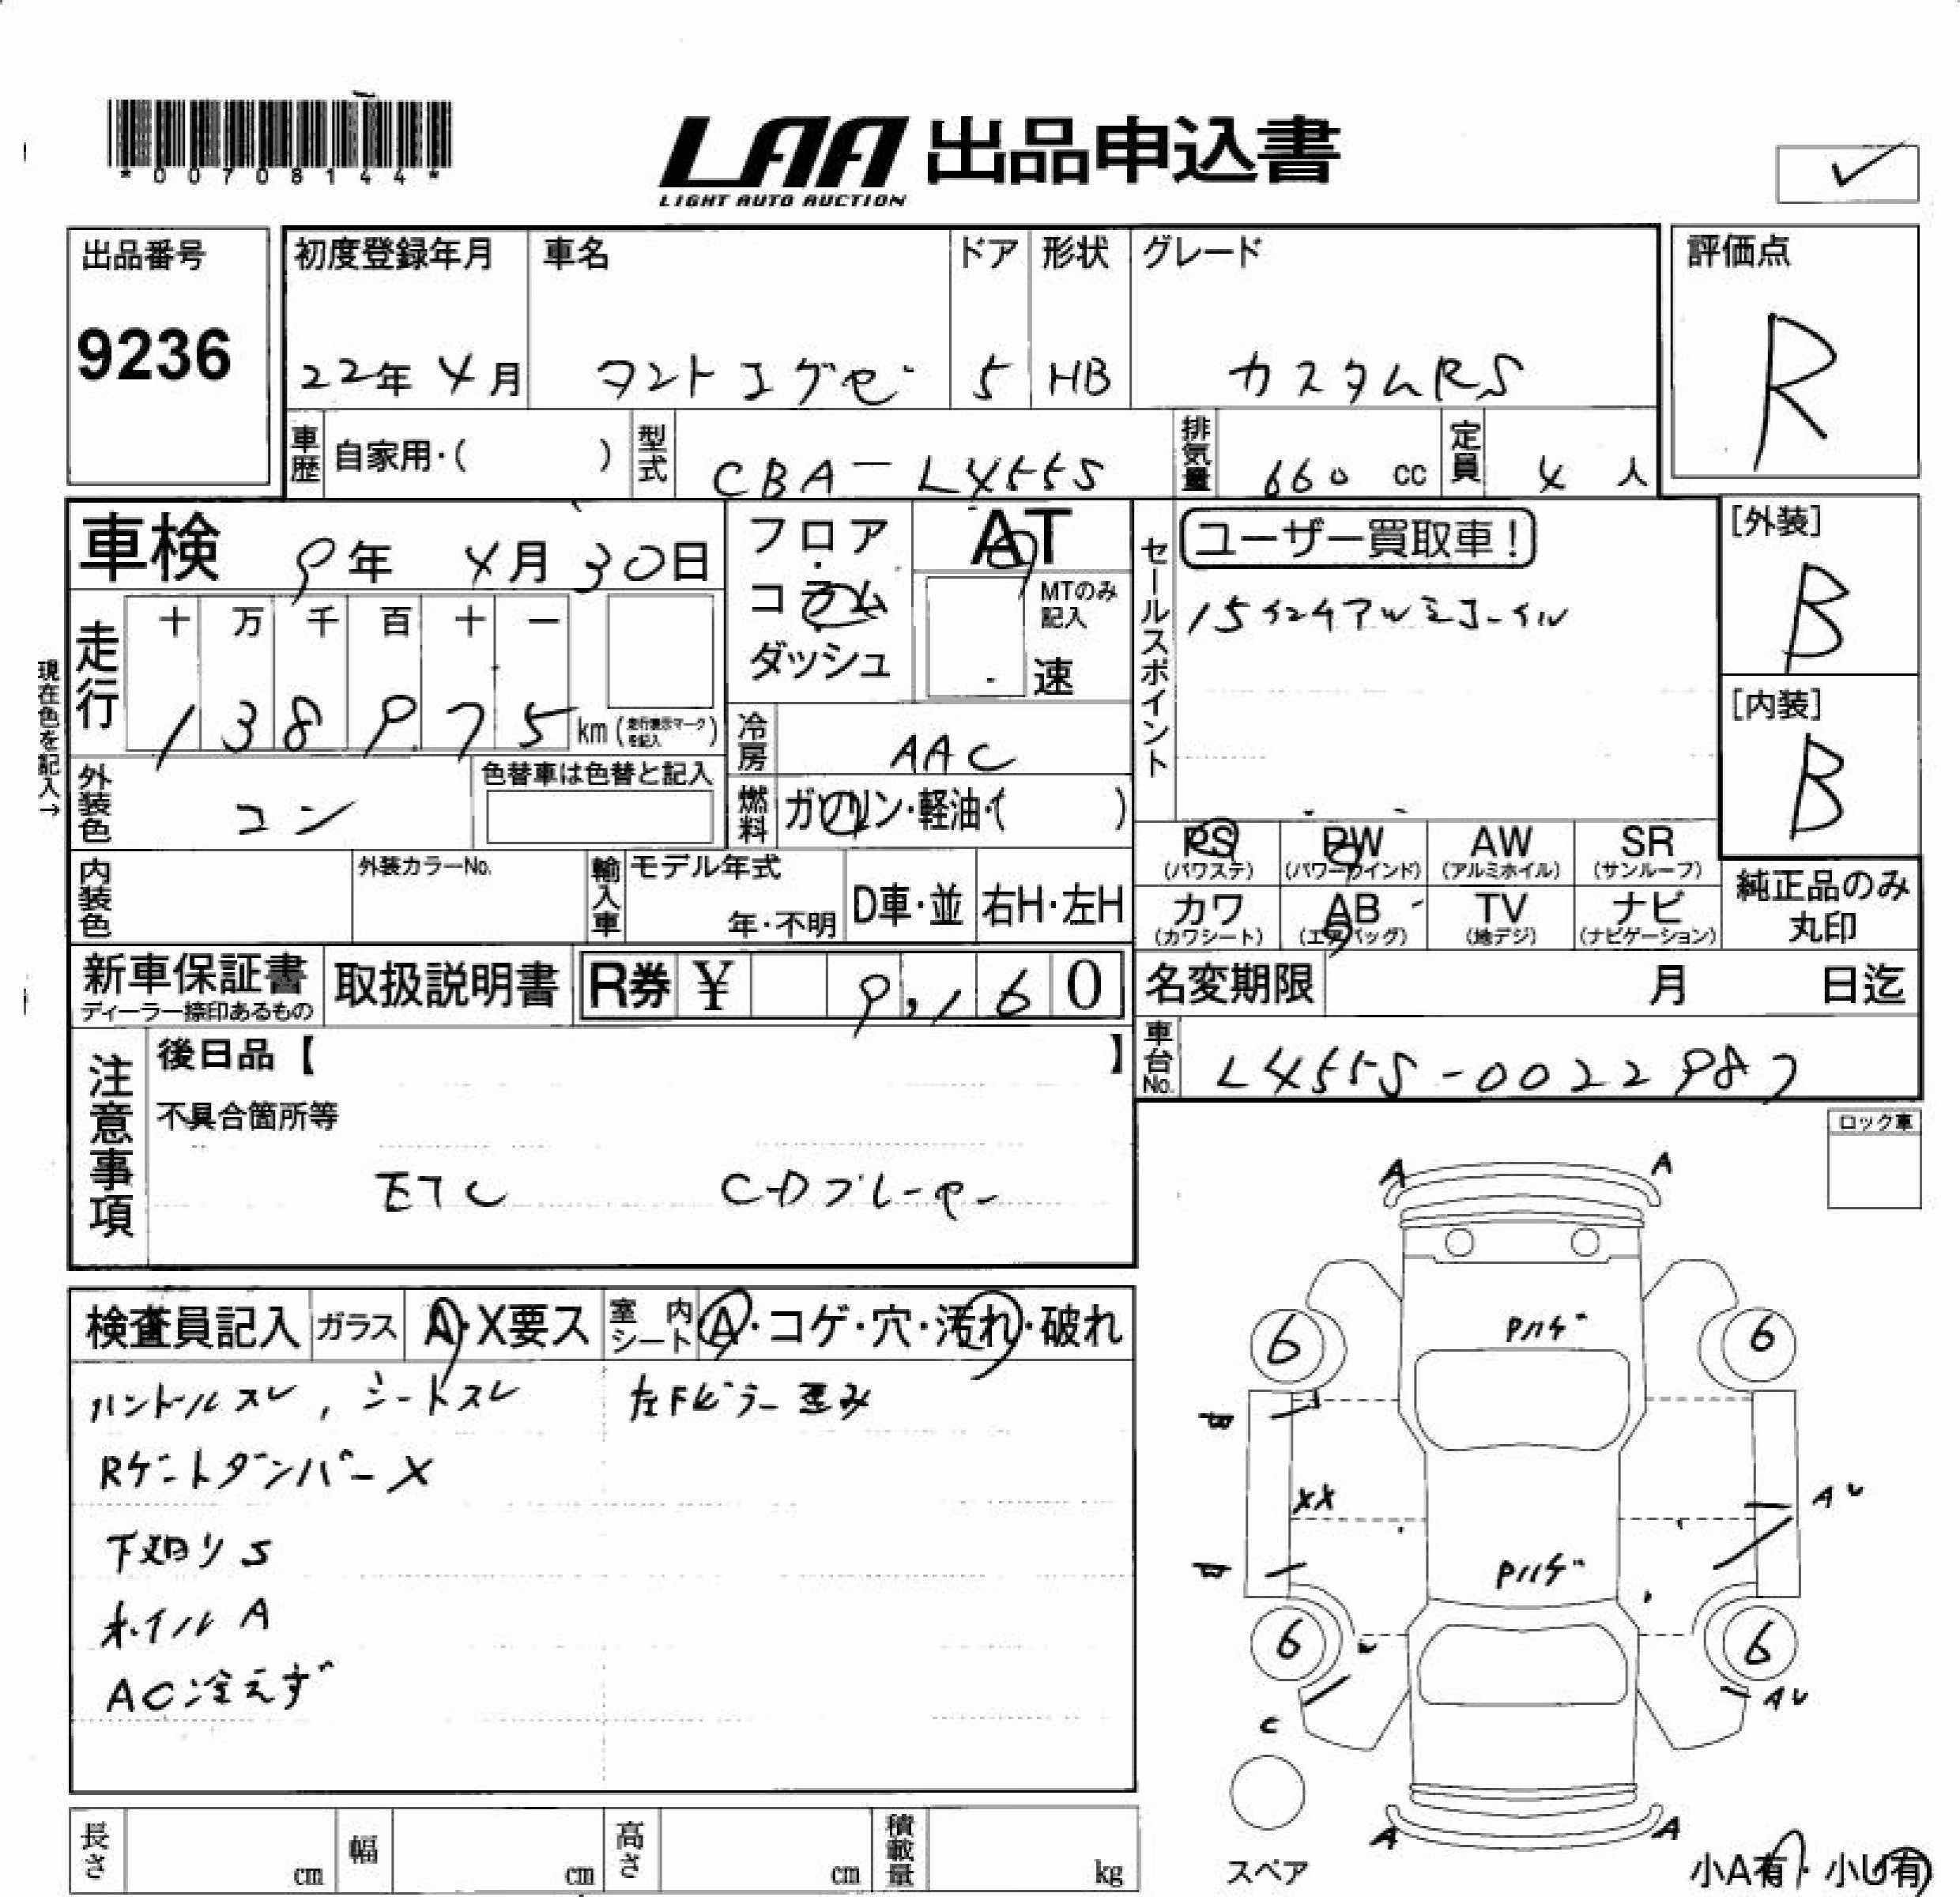 *00708144*
LAA 出品申込書
LIGHT AUTO AUCTION
出品番号
9236
初度登録年月
22年 4月
車名
タントエグゼ
ドア
5
形状
HB
グレード
カスタムRS
評価点
R
車歴 自家用・( )
型式 CBA-L455S
排気量 660 cc
定員 4 人
車検 9年 4月 30日
フロア・コラム
ダッシュ
AT
MTのみ記入
速
セールスポイント
ユーザー買取車!
15インチアルミホイル
[外装]
B
[内装]
B
現在色を記入→
走行
十 万 千 百 十 一
1 3 8 9 7 5 km (走行表示マークを記入)
冷房 AAC
外装色 コン
色替車は色替と記入
燃料 ガソリン・軽油・( )
PS (パワステ)
PW (パワーウインド)
AW (アルミホイル)
SR (サンルーフ)
カワ (カワシート)
AB (エアバッグ)
TV (地デジ)
ナビ (ナビゲーション)
純正品のみ
丸印
内装色
外装カラーNo.
輸入車
モデル年式
年・不明
D車・並
右H・左H
新車保証書
ディーラー捺印あるもの
取扱説明書
R券 ¥ 9,160
名変期限 月 日迄
車台No. L455S-0022987
注意事項
後日品【 】
不具合箇所等
ETC CDプレーヤー
ロック車
検査員記入
ガラス A・X要ス
室内シート A・コゲ・穴・汚れ・破れ
ハンドルスレ, シートスレ 左Fピラー歪み
Rゲートダンパー X
下廻りS
ホイルA
AC冷えず
A A
Pハゲ
6 6
XX
AU
Pハゲ
6 6
AU
C
A A
スペア
小A有・小U有
長さ cm
幅 cm
高さ cm
積載量 kg